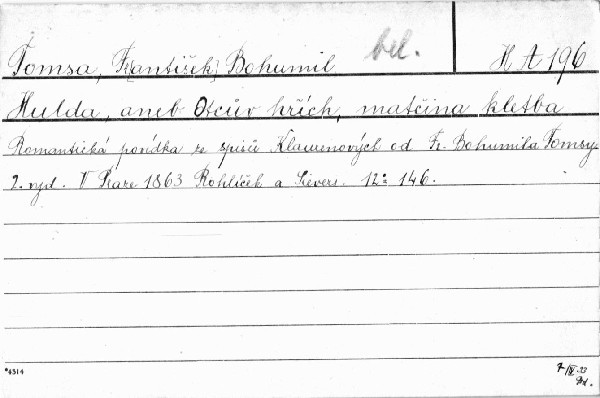 Tomsa, Fr[antišek] Bohumil bel. H A 196
Hulda, aneb Otcův hřích, matčina kletba
Romantická povídka ze spisů Klaurenových od Fr. Bohumila Tomsy.
2. vyd. V Praze 1863 Rohlíček a Sievers. 12° 146.
*4314